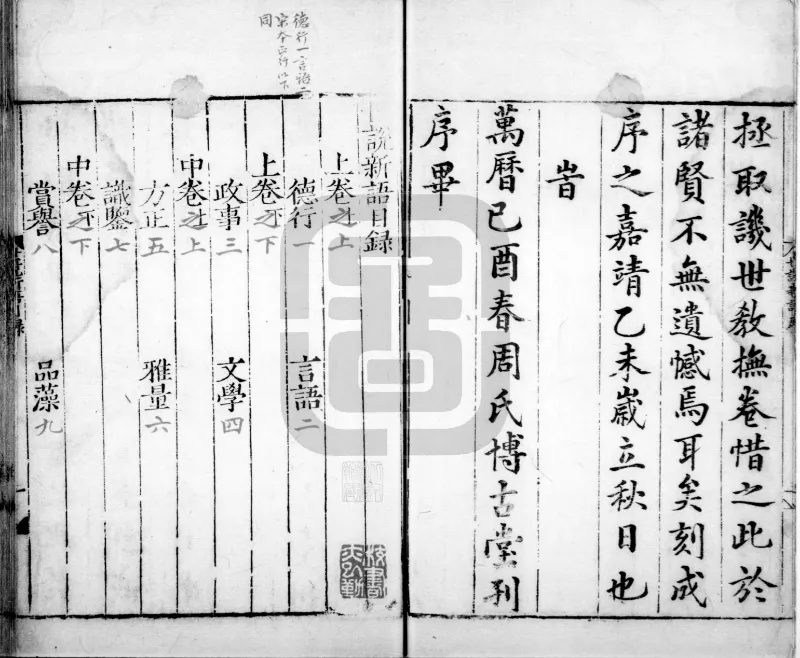 拯取譏世教撫卷惜之此於
諸賢不無遺憾焉耳矣刻成
序之嘉靖乙未歲立秋日也
旹
萬曆己酉春周氏博古堂刊
序畢
說新語目録
上卷之上
德行一 言語二
上卷之下
政事三 文學四
中卷之上
方正五 雅量六
識鑒七
中卷之下
賞譽八 品藻九
德行一言語二
同